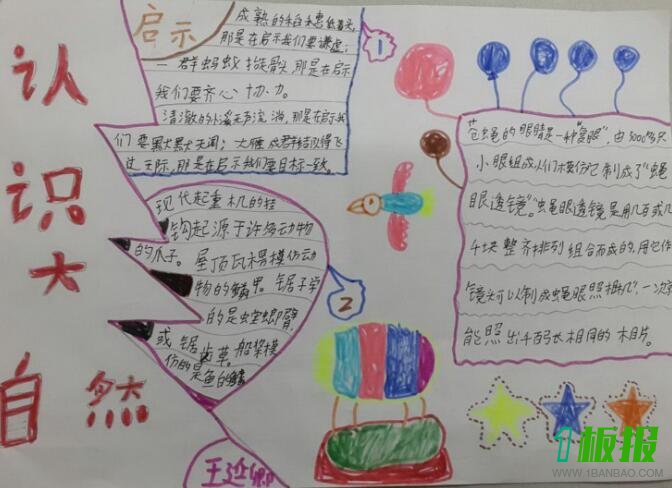 认
识
大
自然
启示
成熟的稻穗低着头,
那是在启示我们要谦虚;
一群蚂蚁搬骨头,那是在启示
我们要齐心协力。
清澈的小溪无声流淌,那是在启示我
们要默默无闻;大雁成群结队得飞
过天际,那是在启示我们要目标一致。
1
现代起重机的挂
钩起源于许多动物
的爪子。屋顶瓦楞模仿动
物的鳞甲。锯子学
的是螳螂臂,
或锯齿草。船桨模
仿的是鱼的鳍
2
王
苍蝇的眼睛是一种“复眼”,由3000多只
小眼组成人们模仿它制成了“蝇
眼透镜”。“蝇眼透镜是用几百或几
千块整齐排列组合而成的,用它作
镜头可以制成蝇眼照相机”,一次
能照出千百张相同的相片。
1板报
WWW.1BANBAO.COM